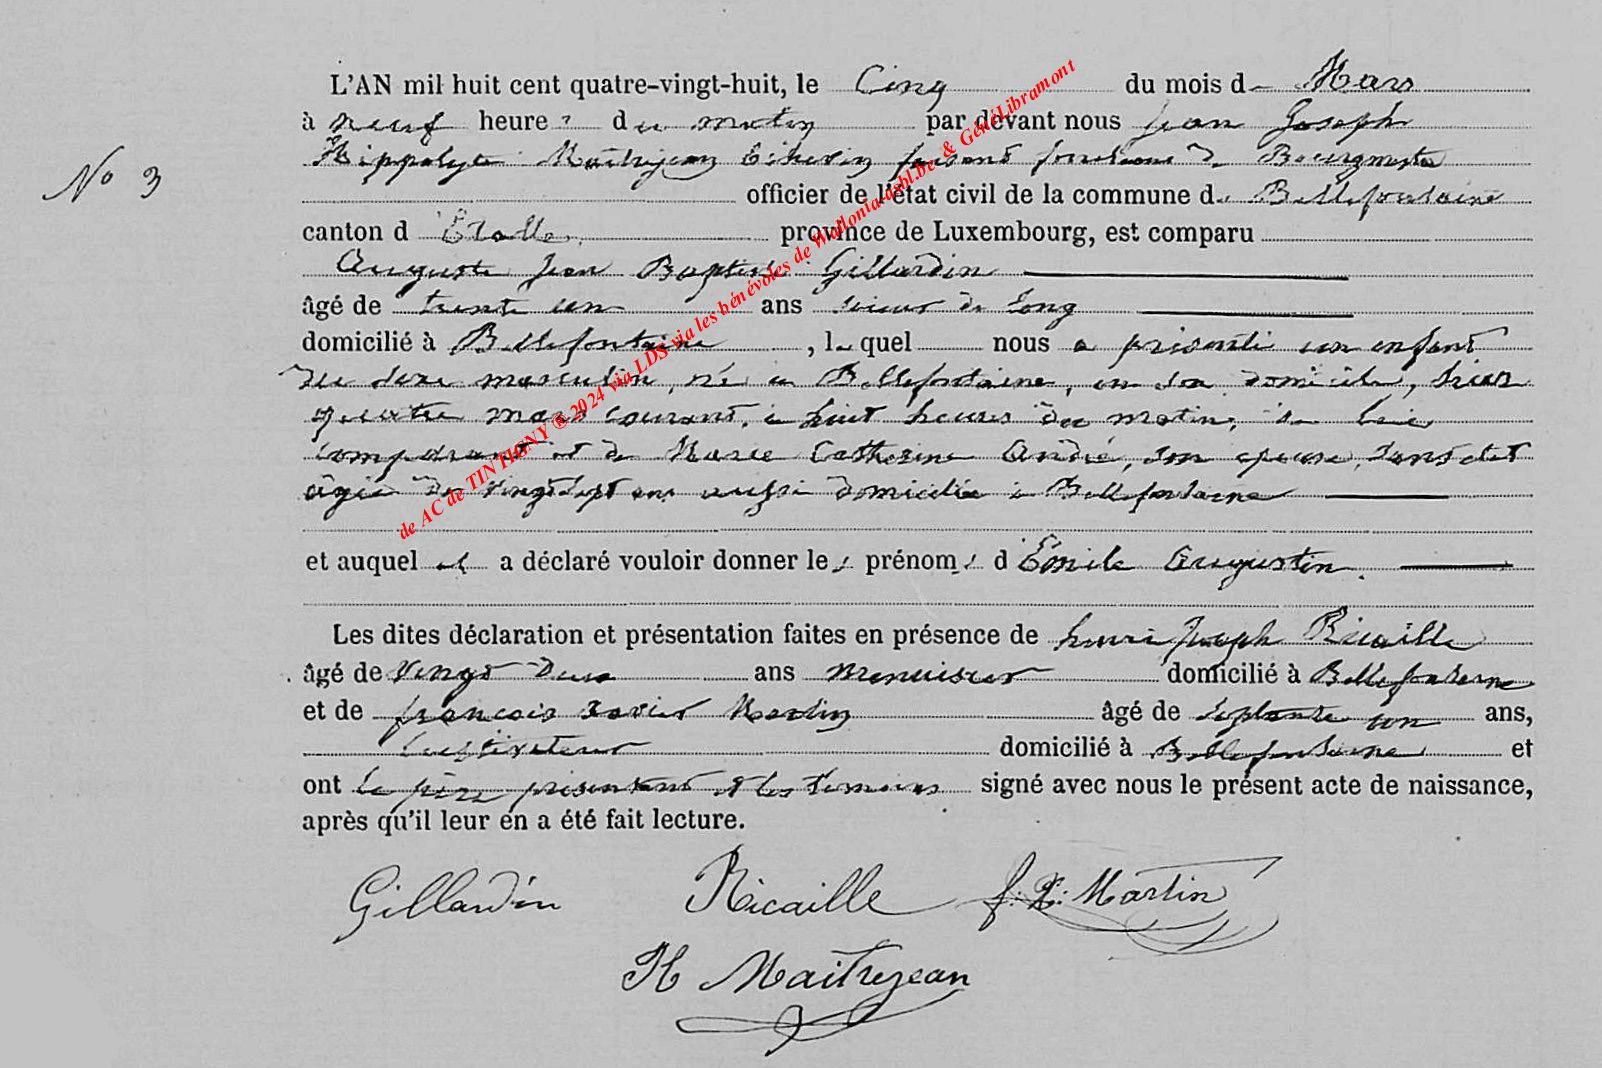 L'AN mil huit cent quatre-vingt-huit, le Cinq du mois de Mars
à neuf heures du matin par devant nous Jean Joseph
Hippolyte Maitrejean Echevin faisant fonctions de Bourgmestre
No 3
officier de l'état civil de la commune de Bellefontaine
canton d'Etalle province de Luxembourg, est comparu
Auguste Jean Baptiste Gillardin
âgé de trente un ans scieur de long
domicilié à Bellefontaine, lequel nous a présenté un enfant
du sexe masculin, né à Bellefontaine, en son domicile, hier
quatre mars courant, à huit heures du matin, de lui
comparant et de Marie Catherine André, son épouse, sans état
âgée de vingt sept ans aussi domiciliée à Bellefontaine
et auquel il a déclaré vouloir donner les prénoms d'Émile Augustin.
Les dites déclaration et présentation faites en présence de henri Joseph Ricaille
âgé de vingt deux ans menuisier domicilié à Bellefontaine
et de françois Xavier Martin âgé de septante un ans,
cultivateur domicilié à Bellefontaine et
ont le père présentant et les témoins signé avec nous le présent acte de naissance,
après qu'il leur en a été fait lecture.
Gillardin Ricaille f. X. Martin
H Maitrejean
de AC de TINTIGNY ® 2024 via LDS via les bénévoles de Wallonia-asbl.be & GénéLibramont